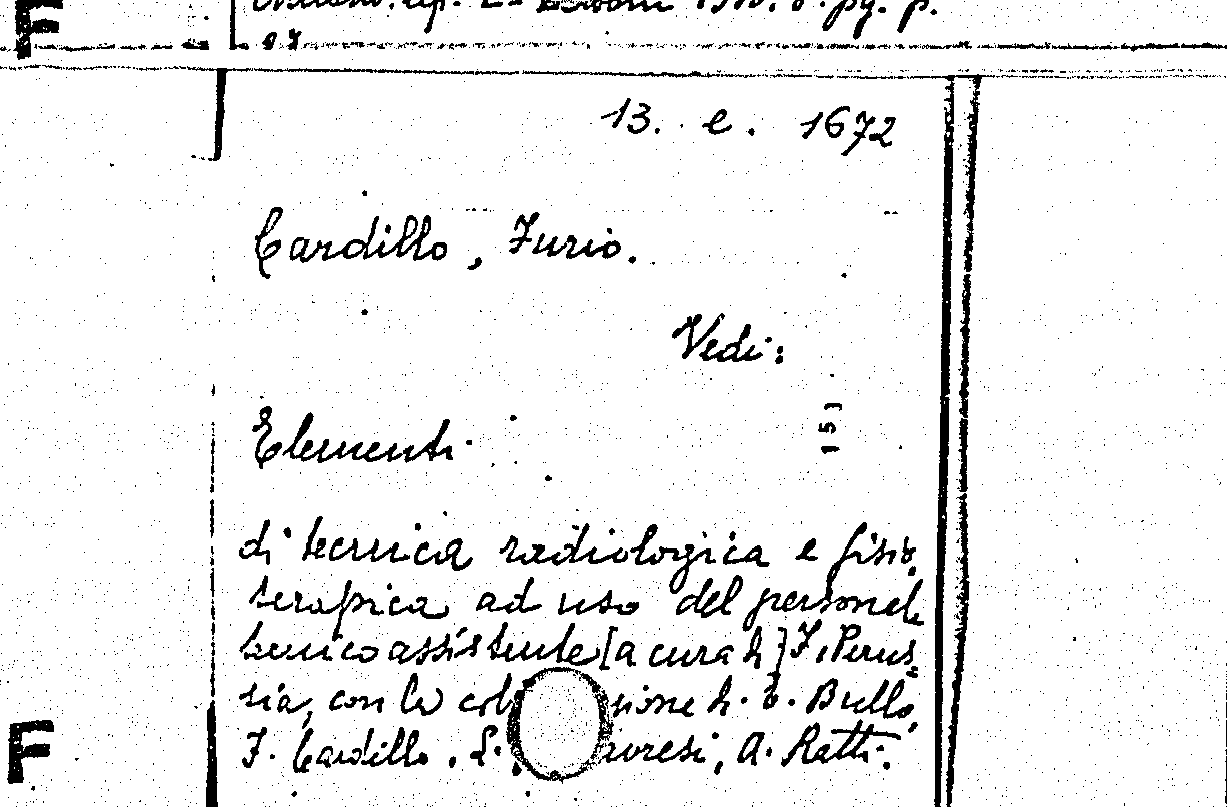 F
13. e. 1672
Cardillo, Furio.
Vedi:
Elementi
151
di tecnica radiologica e fisio
terapica ad uso del personale
tecnico assistente [a cura di] F. Perus=
sia, con la di E. Bullo,
F. Cardillo, L. A. Ratti.
F